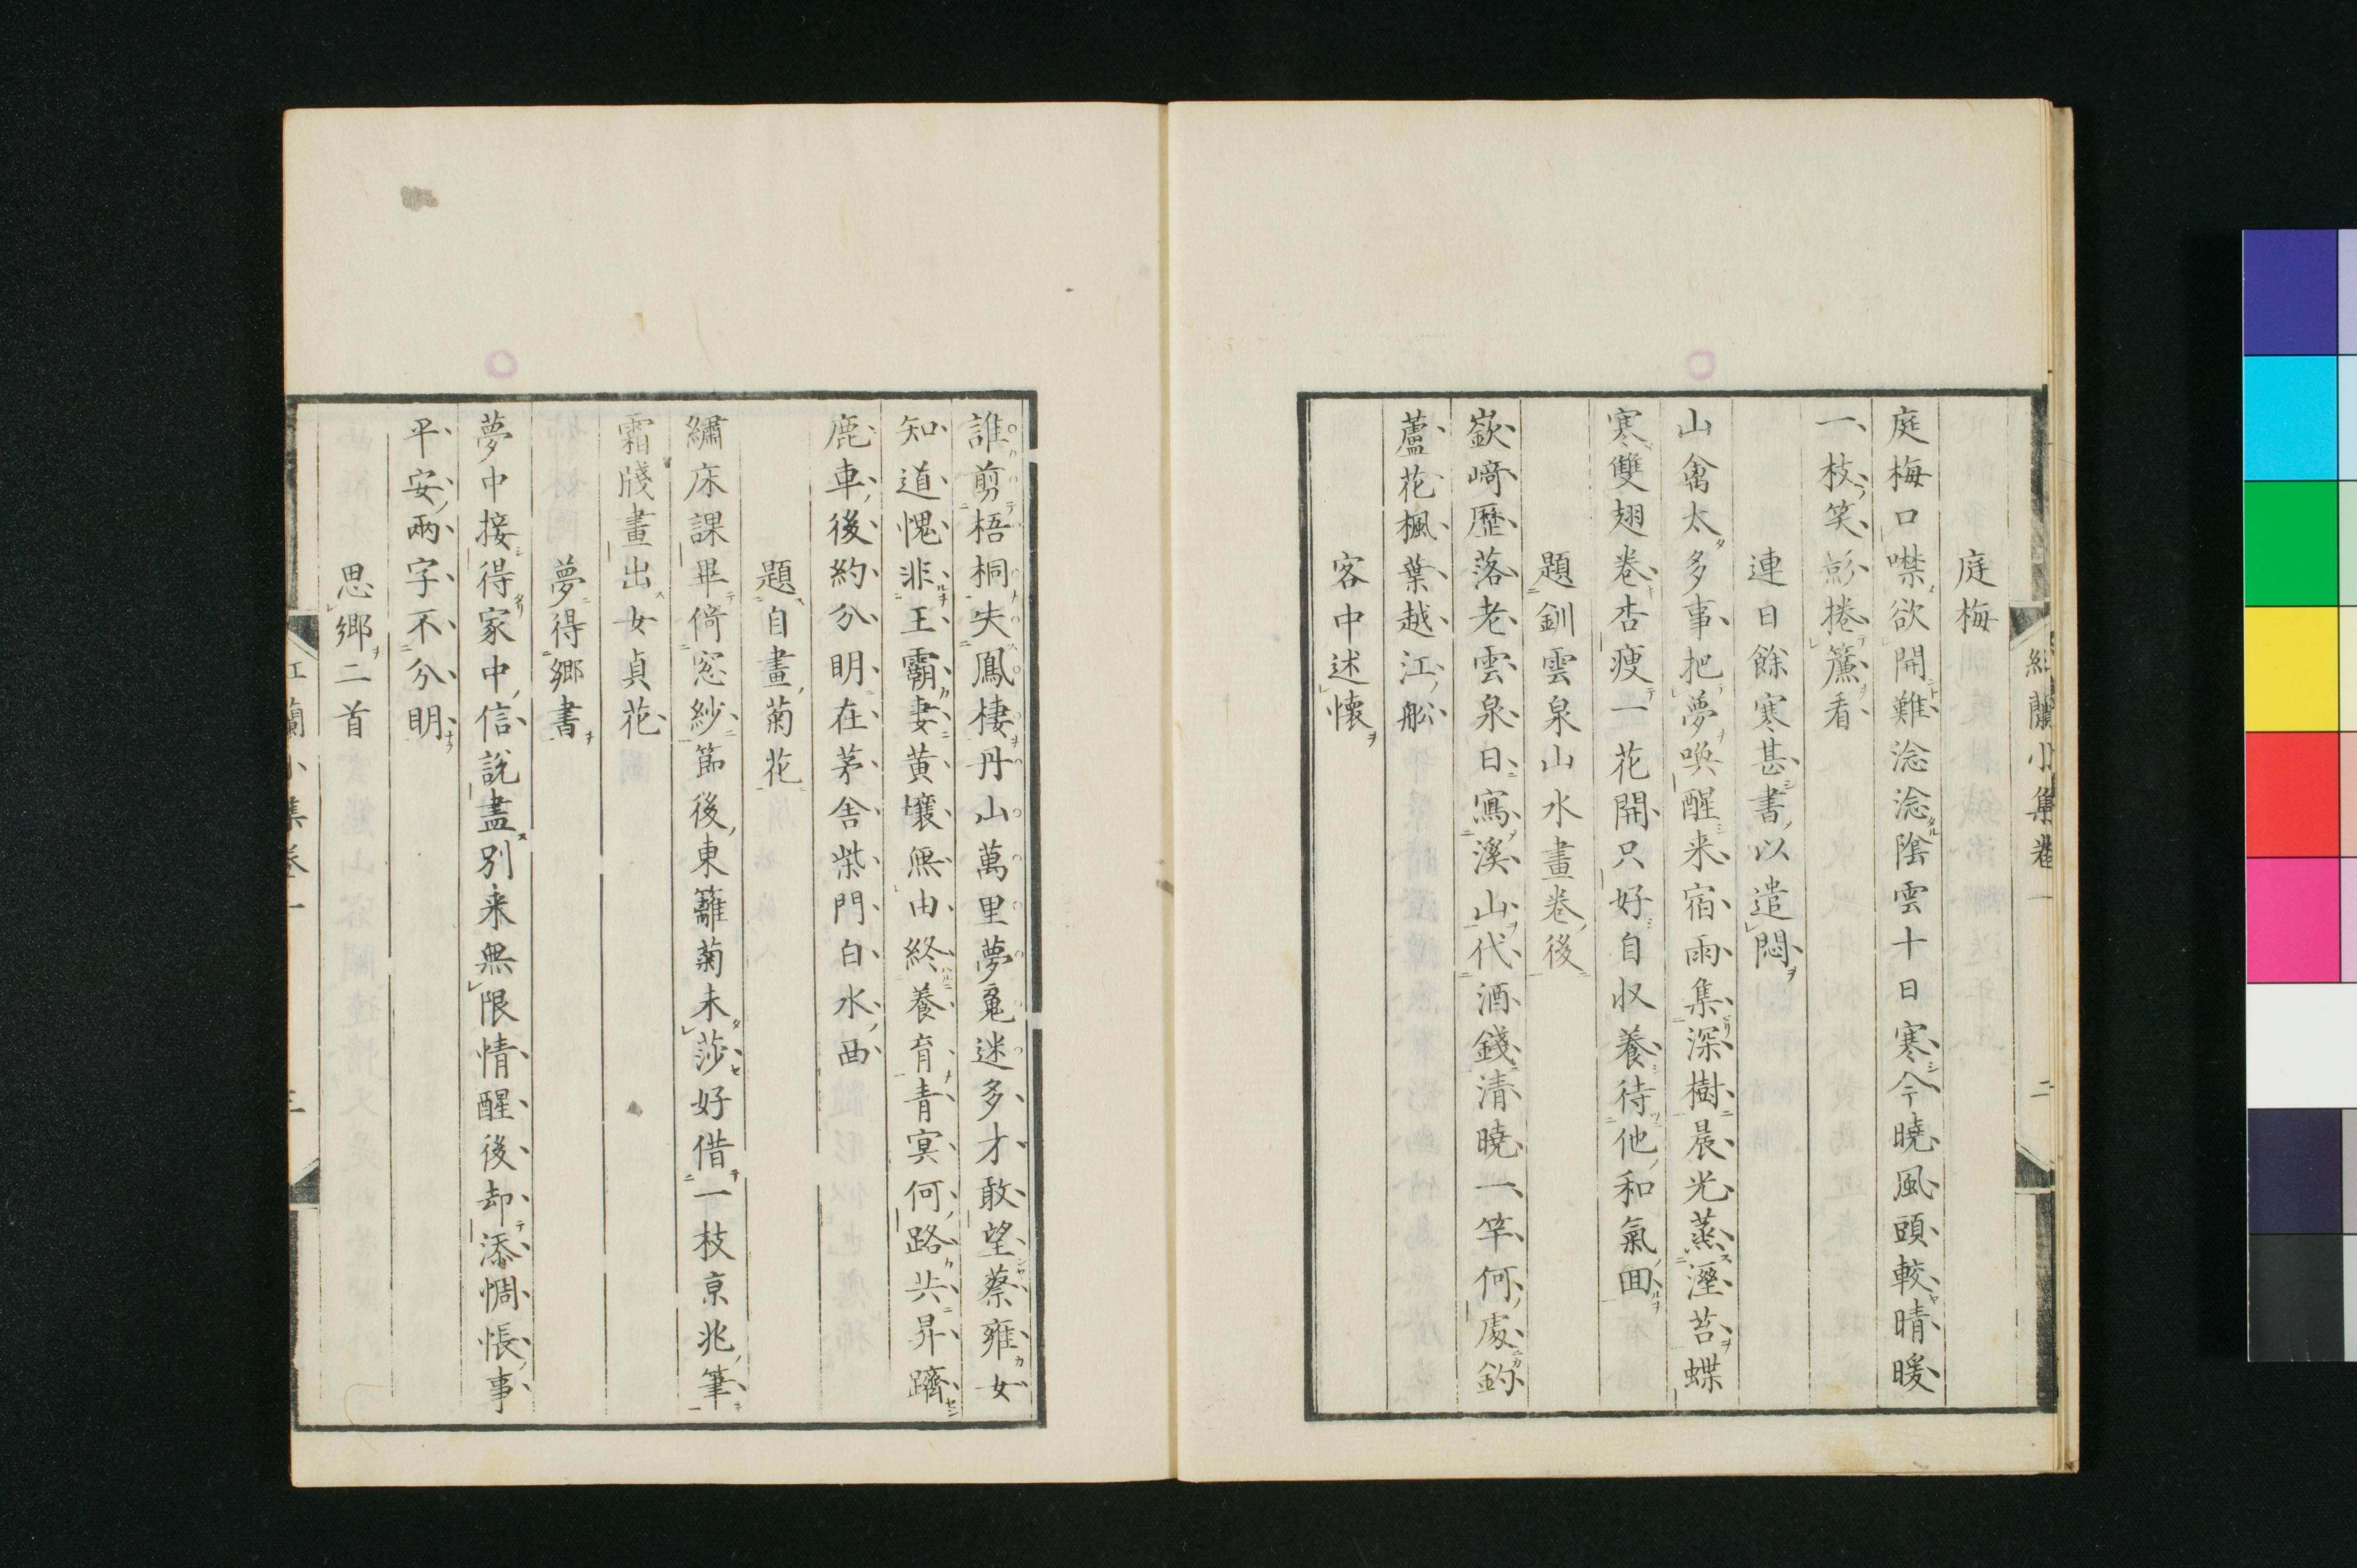 紅蘭小集卷一 二
庭梅
庭梅口噤欲開難淰淰陰雲十日寒今曉風頭較晴暖
一枝笑影捲簾看
連日餘寒甚書以遣悶
山禽太多事把夢喚醒来宿雨集深樹晨光蒸溼苔蝶
寒雙翅卷杏瘦一花開只好自収養待他和氣回
題釧雲泉山水畫卷後
嶔﨑歷落老雲泉日寫溪山代酒錢清曉一竿何處釣
蘆花楓葉越江舩
客中述懷
誰剪梧桐失鳳棲丹山萬里夢魂迷多才敢望蔡雍女
知道愧非王霸妻黃壤無由終養育青冥何路共昇躋
鹿車後約分明在茅舍柴門白水西
題自畫菊花
繡床課畢倚窓紗節後東籬菊未莎好借一枝京兆筆
霜牋畫出女貞花
夢得郷書
夢中接得家中信說盡別来無限情醒後却添惆悵事
平安兩字不分明
思郷二首
紅蘭小集卷一 三